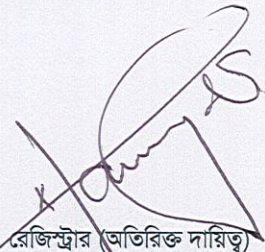 রেজিস্ট্রার (অতিরিক্ত দায়িত্ব)